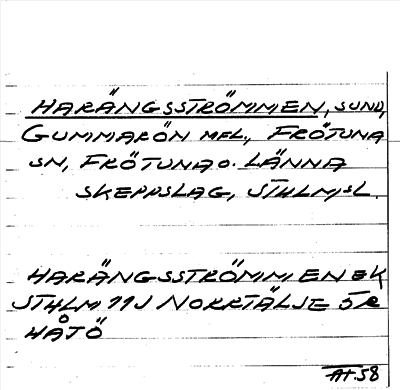 HARÄNGSSTRÖMMEN, SUND,
GUMMARÖN MFL., FRÖTUNA
SN, FRÖTUNA O. LÄNNA
SKEPPSLAG, STHLMSL.
HARÄNGSSTRÖMMEN EK
STHLM 11J NORRTÄLJE 5R
HÅTÖ
AH 58